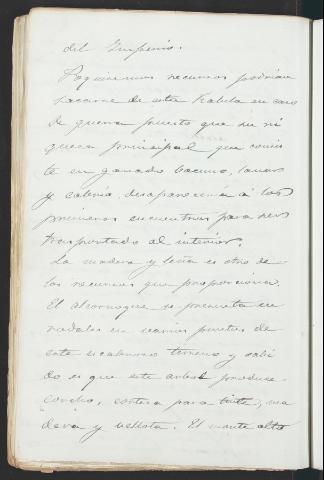 del Imperio.
Poquísimos recursos podrian
sacarse de esta Kabila en caso
de guerra puesto que su ri
queza principal que consis
te en ganado bacuno, lanar
y cabrio, desapareceria á los
primeros encuentros para ser
trasportado al interior.
La madera y leña es otro de
los recursos que proporciona.
El alcornoque se presenta en
rodales en varios puntos de
este escabroso terreno y sabi
do es que este arbol produce
corcho, corteza para tinte, ma
dera y bellota. El monte alto